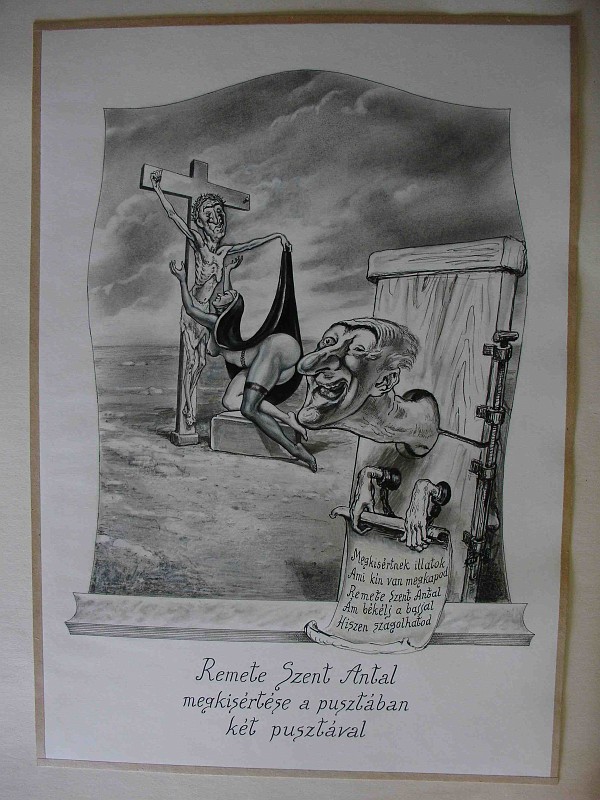 Megkisértnek illatok
Ami kin van megkapod
Remete Szent Antal
Ám békélj a bajjal
Hiszen szagolhatod
Remete Szent Antal
megkisértése a pusztában
két pusztával